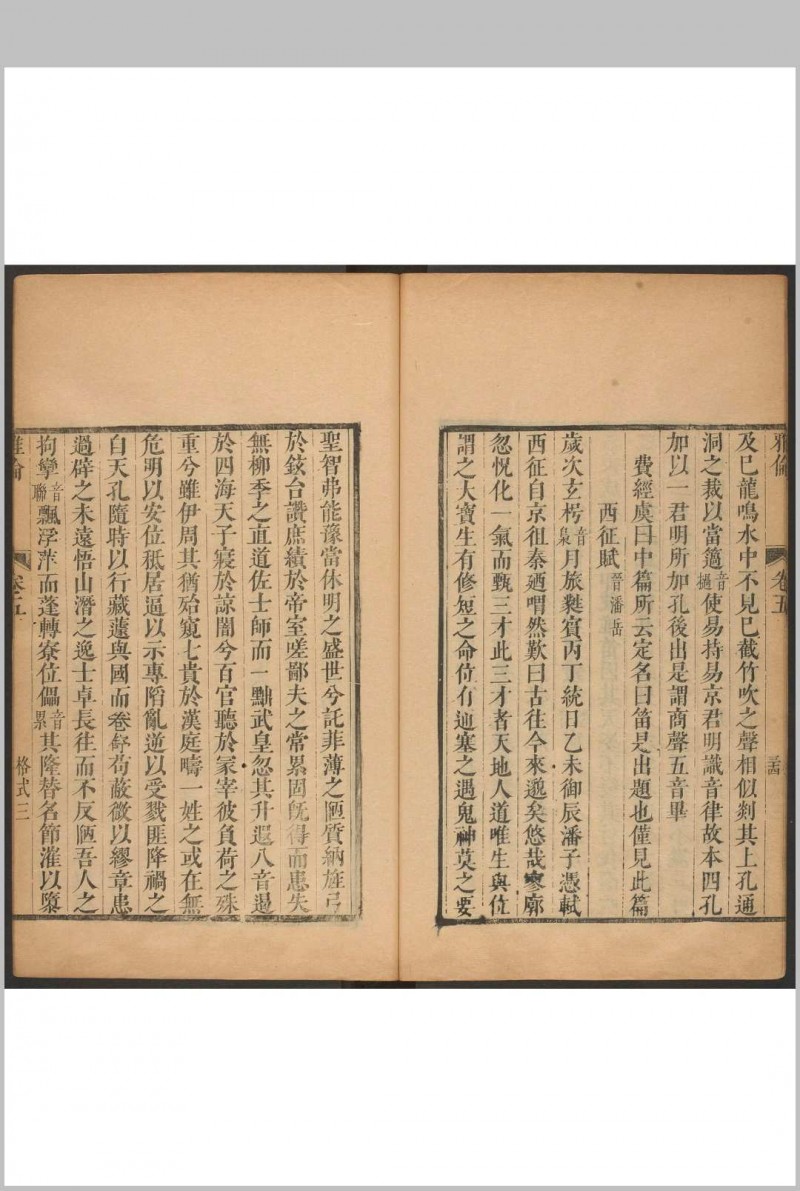 雅倫
卷五
及巳龍鳴水中不見巳截竹吹之聲相似剡其上孔通
洞之裁以當薖音撾使易持易京君明識音律故本四孔
加以一君明所加孔後出是謂商聲五音畢
費經虞曰中篇所云定名曰笛是出題也僅見此篇
西征賦晉潘岳
歲次玄枵音梟月旅蕤賓丙丁統日乙未御辰潘子憑軾
西征自京徂秦廼喟然歎曰古往今來邈矣悠哉寥廓
忽怳化一氣而甄三才此三才者天地人道唯生與位
謂之大寶生有修短之命位有通塞之遇鬼神莫之要
聖智弗能豫當休明之盛世兮託菲薄之陋質納旌弓
於鉉台讚庶績於帝室嗟鄙夫之常累固旣得而患失
無柳季之直道佐士師而一黜武皇忽其升遐八音遏
於四海天子寢於諒闇兮百官聽於冢宰彼負荷之殊
重兮雖伊周其猶殆窺七貴於漢庭疇一姓之或在無
危明以安位秪居逼以示專陷亂逆以受戮匪降禍之
自天孔隨時以行藏蘧與國而卷舒苟蔽微以繆章患
過辟之未遠悟山潛之逸士卓長往而不反陋吾人之
拘攣音聯飄浮萍而蓬轉寮位儡音累其隆替名節漼以隳
雅倫
卷五
格式三